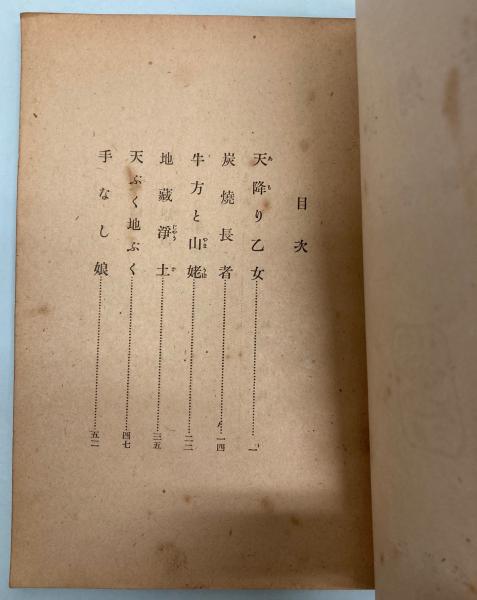 目次
天降り乙女……一
炭燒長者……一四
牛方と山姥……二二
地藏淨土……三五
天ぶく地ぶく……四七
手なし娘……五二